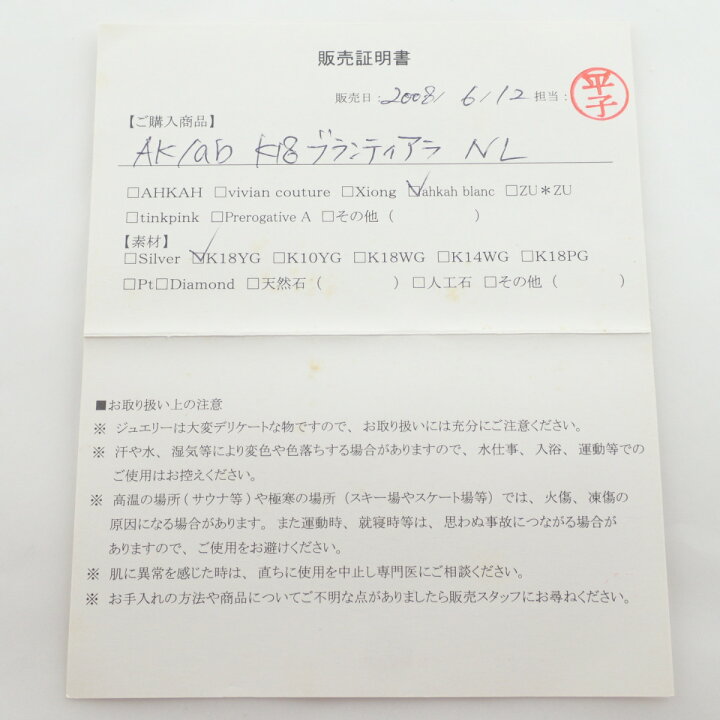 販売証明書
販売日：2008/ 6/12 担当： 平子
【ご購入商品】
AK/ab K18 ブランティアラ NL
□AHKAH □vivian couture □Xiong ☑ahkah blanc □ZU＊ZU
□tinkpink □Prerogative A □その他（ ）
【素材】
□Silver ☑K18YG □K10YG □K18WG □K14WG □K18PG
□Pt□Diamond □天然石（ ）□人工石 □その他（ ）
■お取り扱い上の注意
※ ジュエリーは大変デリケートな物ですので、お取り扱いには充分にご注意ください。
※ 汗や水、湿気等により変色や色落ちする場合がありますので、水仕事、入浴、運動等での
ご使用はお控えください。
※ 高温の場所(サウナ等)や極寒の場所（スキー場やスケート場等）では、火傷、凍傷の
原因になる場合があります。また運動時、就寝時等は、思わぬ事故につながる場合が
ありますので、ご使用をお避けください。
※ 肌に異常を感じた時は、直ちに使用を中止し専門医にご相談ください。
※ お手入れの方法や商品についてご不明な点がありましたら販売スタッフにお尋ねください。